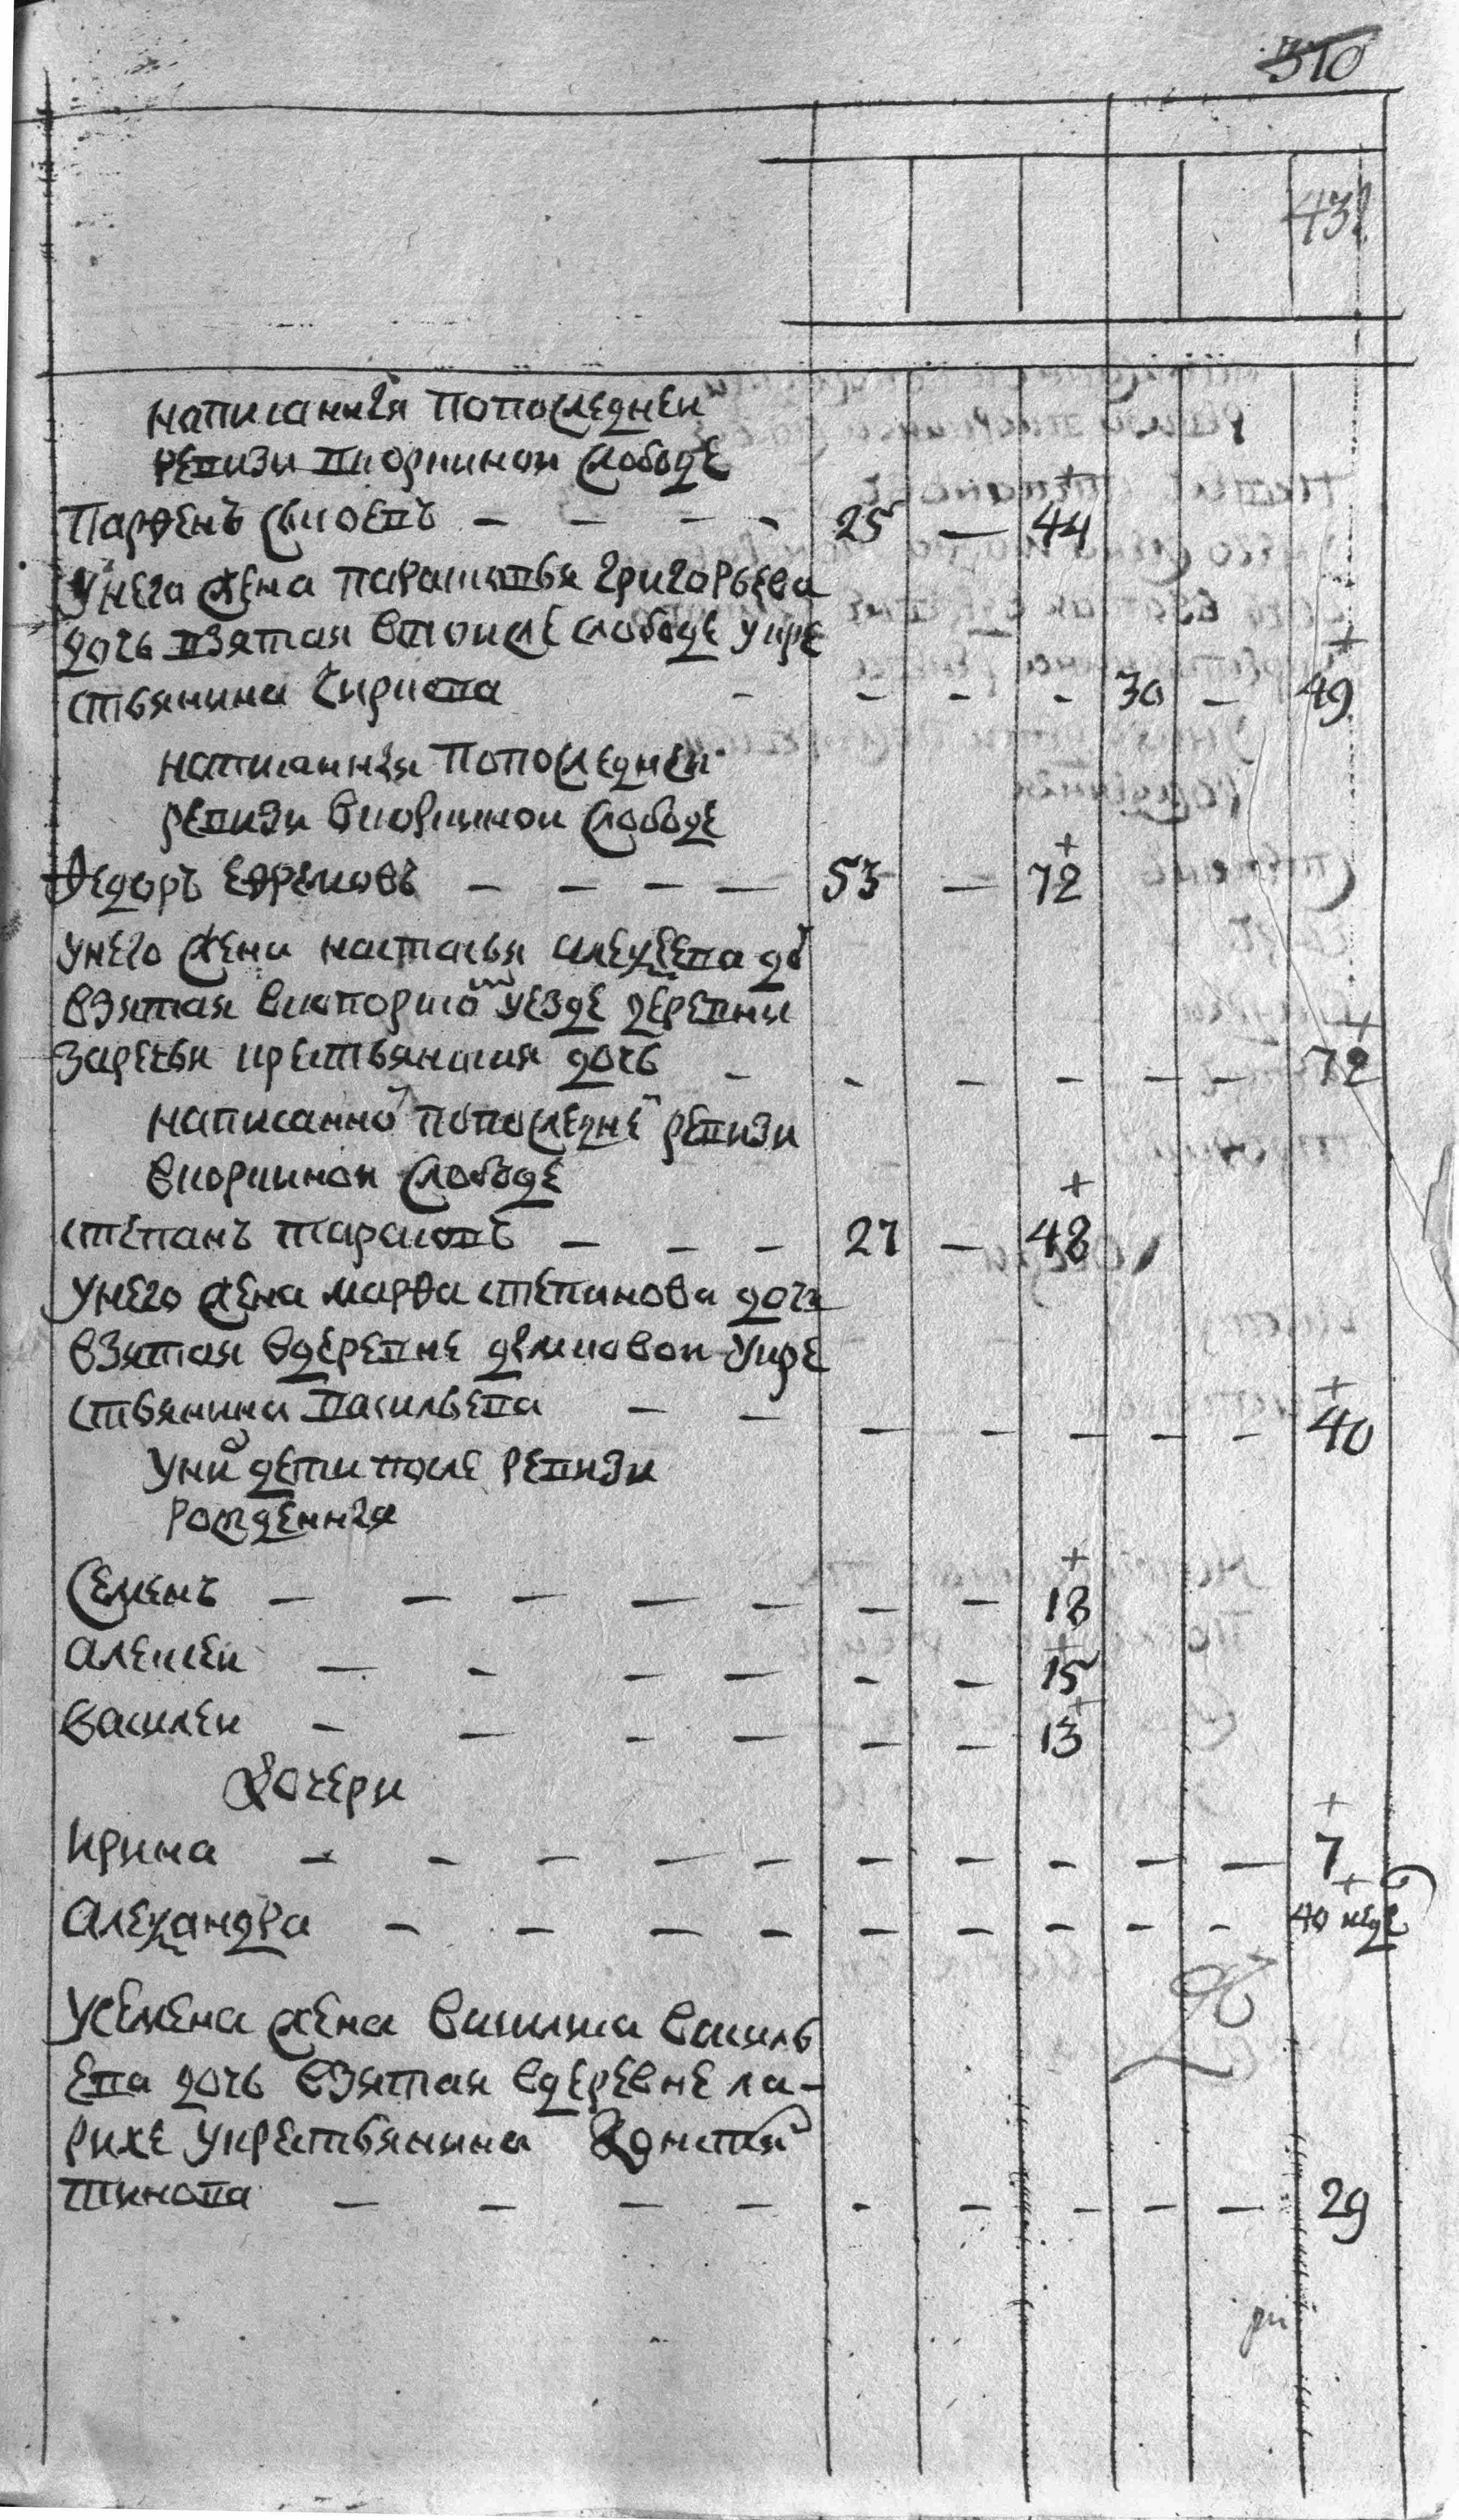 310
432
написанныя попоследнеи
ревизи вкоркиной слободе
Парфенъ сысоевъ — — — — 25 — 44
унего жена парасковья григорьева
дочь взятая втоиже слободе укре
стьянина — — — — 30 — 49
написанныя попоследнеи
ревизи вкоркинои слободе
Федоръ ефремовъ — — — — 53 — 72
унего жена настасья алексеева до
взятая в уезде деревни
заречья крестьянская дочь — — — — — — 72
написанно попоследне ревизи
вкоркинои слободе
степанъ тарасовъ — — — 27 — 48
унего жена марфа степанова дочь
взятая вдеревне демисовои укре
стьянина васильева — — — — — — — 40
уни дети после ревизи
рожденныя
Семенъ — — — — — — — 18
алексеи — — — — — — 15
василеи — — — — — — 13
Дочери
ирина — — — — — — — — — — 7
александра — — — — — — — — — 40 неде
усемена жена василиса василь
ева дочь взятая вдеревне ла-
рихе укрестьянина констян
тинова — — — — — — — — — 29